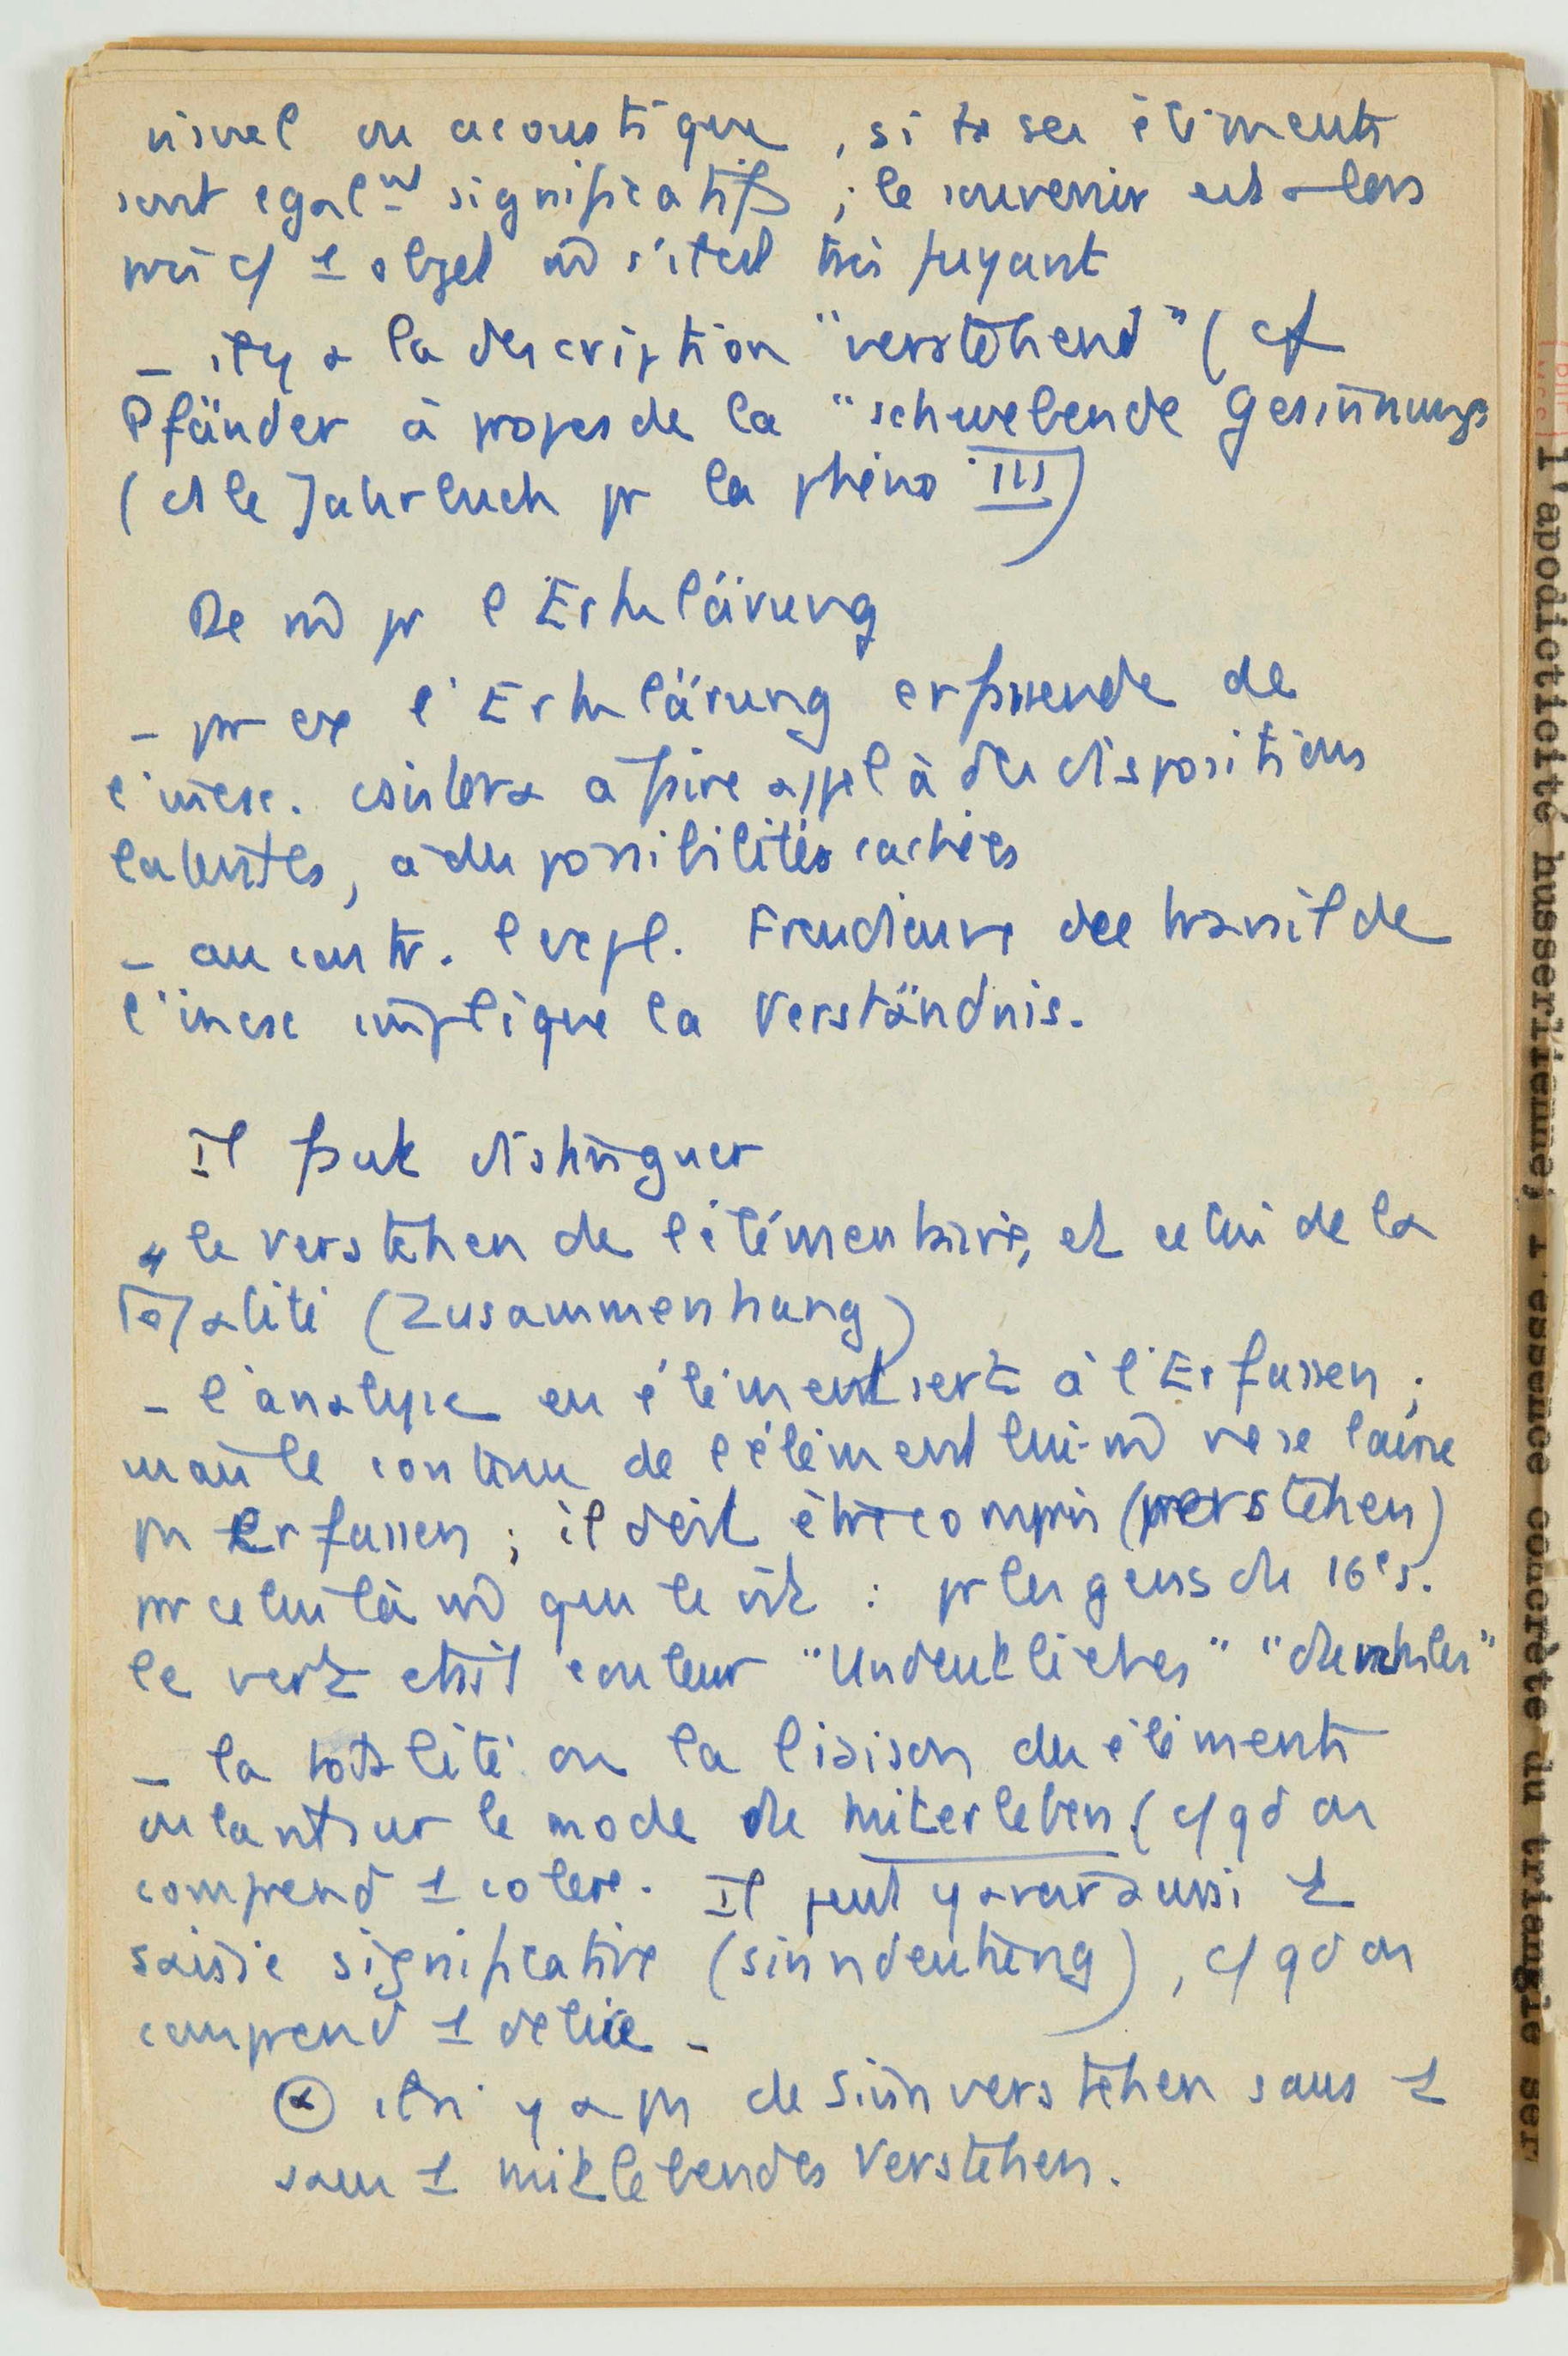 visuel ou acoustique, si ts ses éléments
sont égalnt significatifs ; le souvenir est alors
pris c/ 1 objet m̂ s'il est très fuyant
– il y a la description "verstehend" (cf
Pfänder à propos de la "schwebende Gesinnung
(ds le Jahrbuch pr la phéno III)
De m̂ pr l'Erklärung
– pr ex l'Erklärung erfassende de
l'incsc. consistera à faire appel à des dispositions
latentes, à des possibilités cachées
– au contr. l'expl. Freudienne du travail de
l'incsc implique la Verständnis.
Il faut distinguer
le verstehen de l'élémentaire, et celui de la
Totalité (Zusammenhang)
– l'analyse en élément sert à l'Erfassen ;
mais le contenu de l'élément lui-m̂ ne se laisse
pas Erfassen ; il doit être compris (verstehen)
par celui là m̂ qui le vit : pr les gens du 16e s.
le vert était couleur
– la totalité ou la liaison des éléments
sur le mode du miterleben (c/ qd on
comprend 1 colère. Il peut y avoir aussi 1
saisie significative (sinndeutung), c/ qd on
comprend 1 délire –
α il n'y a pas de Sinnverstehen sans 1
sans 1 miklebendes Verstehen.
l'apodicticité husserlienne, l'essence concrète du triangle ser